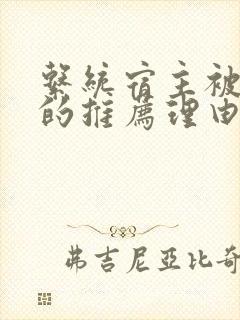 繫統宿主被
的推薦理由
弗吉尼亞比奇